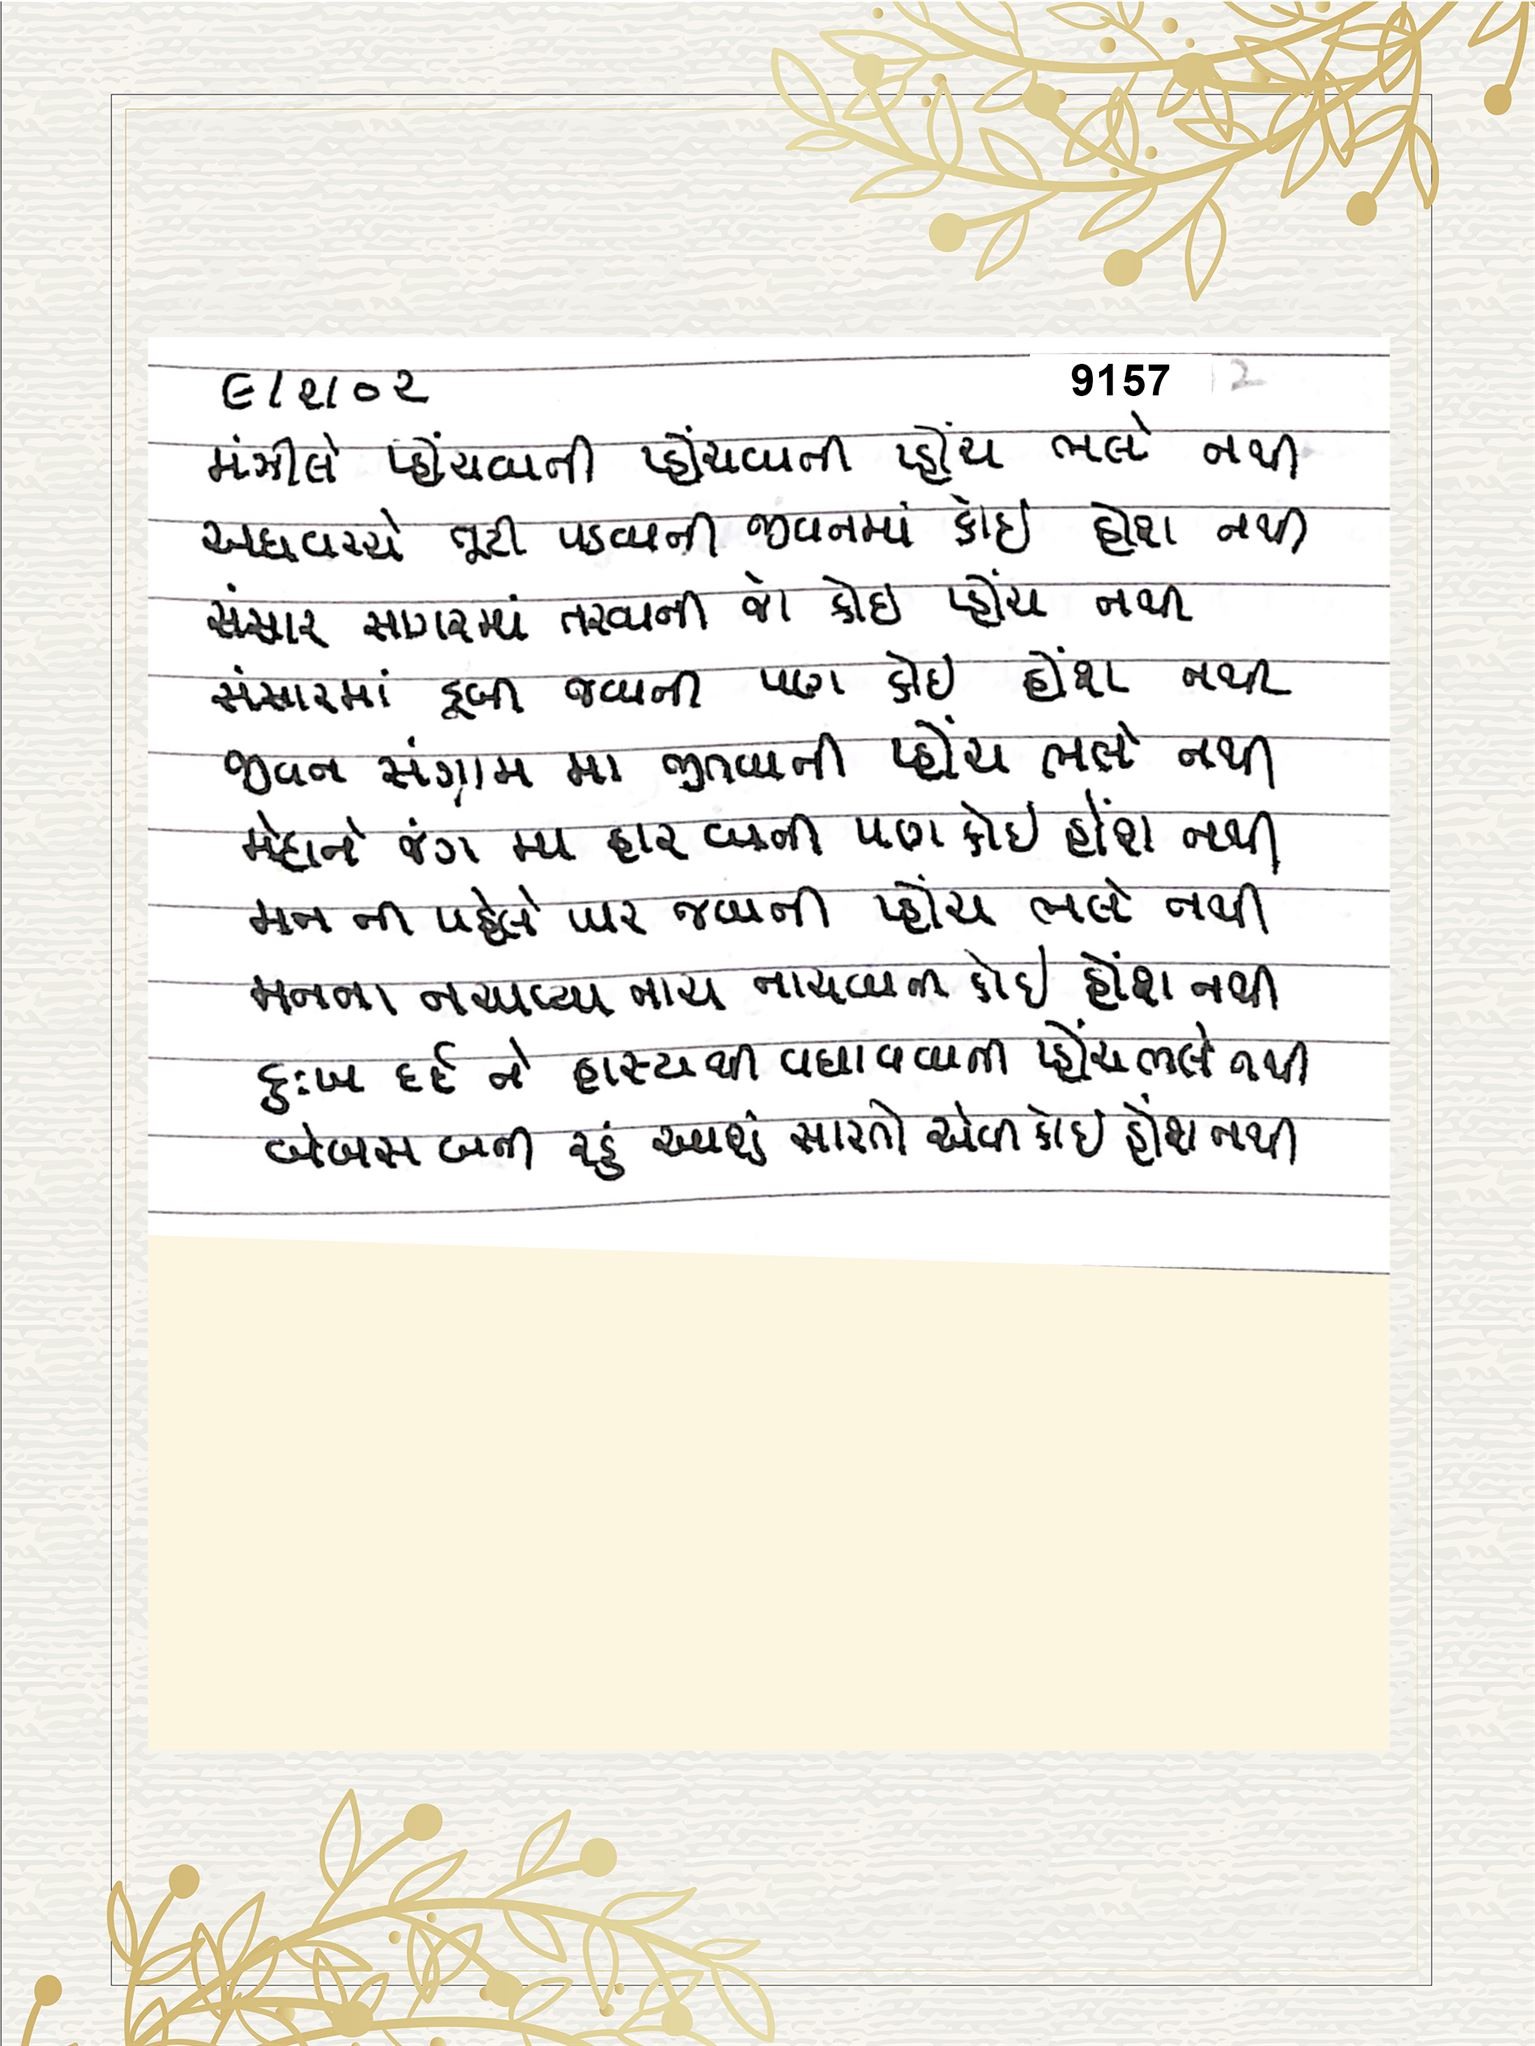 ૯/૨/૦૨ 9157
મંઝીલે પ્હોંચવાની પ્હોંચવાની પ્હોંચ ભલે નથી
અધવચ્ચે તૂટી પડવાની જીવનમાં કોઇ હોશ નથી
સંસાર સાગરમાં તરવાની જો કોઇ પ્હોંચ નથી
સંસારમાં ડૂબી જવાની પણ કોઇ હોંશ નથી
જીવન સંગ્રામ મા જીતવાની પ્હોંચ ભલે નથી
મેદાને જંગ મા હાર વાની પણ કોઇ હોંશ નથી
મન ની પહેલે પાર જવાની પ્હોંચ ભલે નથી
મનના નચાવ્યા નાચ નાચવાની કોઇ હોંશ નથી
દુઃખ દર્દ ને હાસ્યથી વધાવવાની પ્હોંચ ભલે નથી
બેબસ બની રડું આશું સારતો એવી કોઇ હોંશ નથી